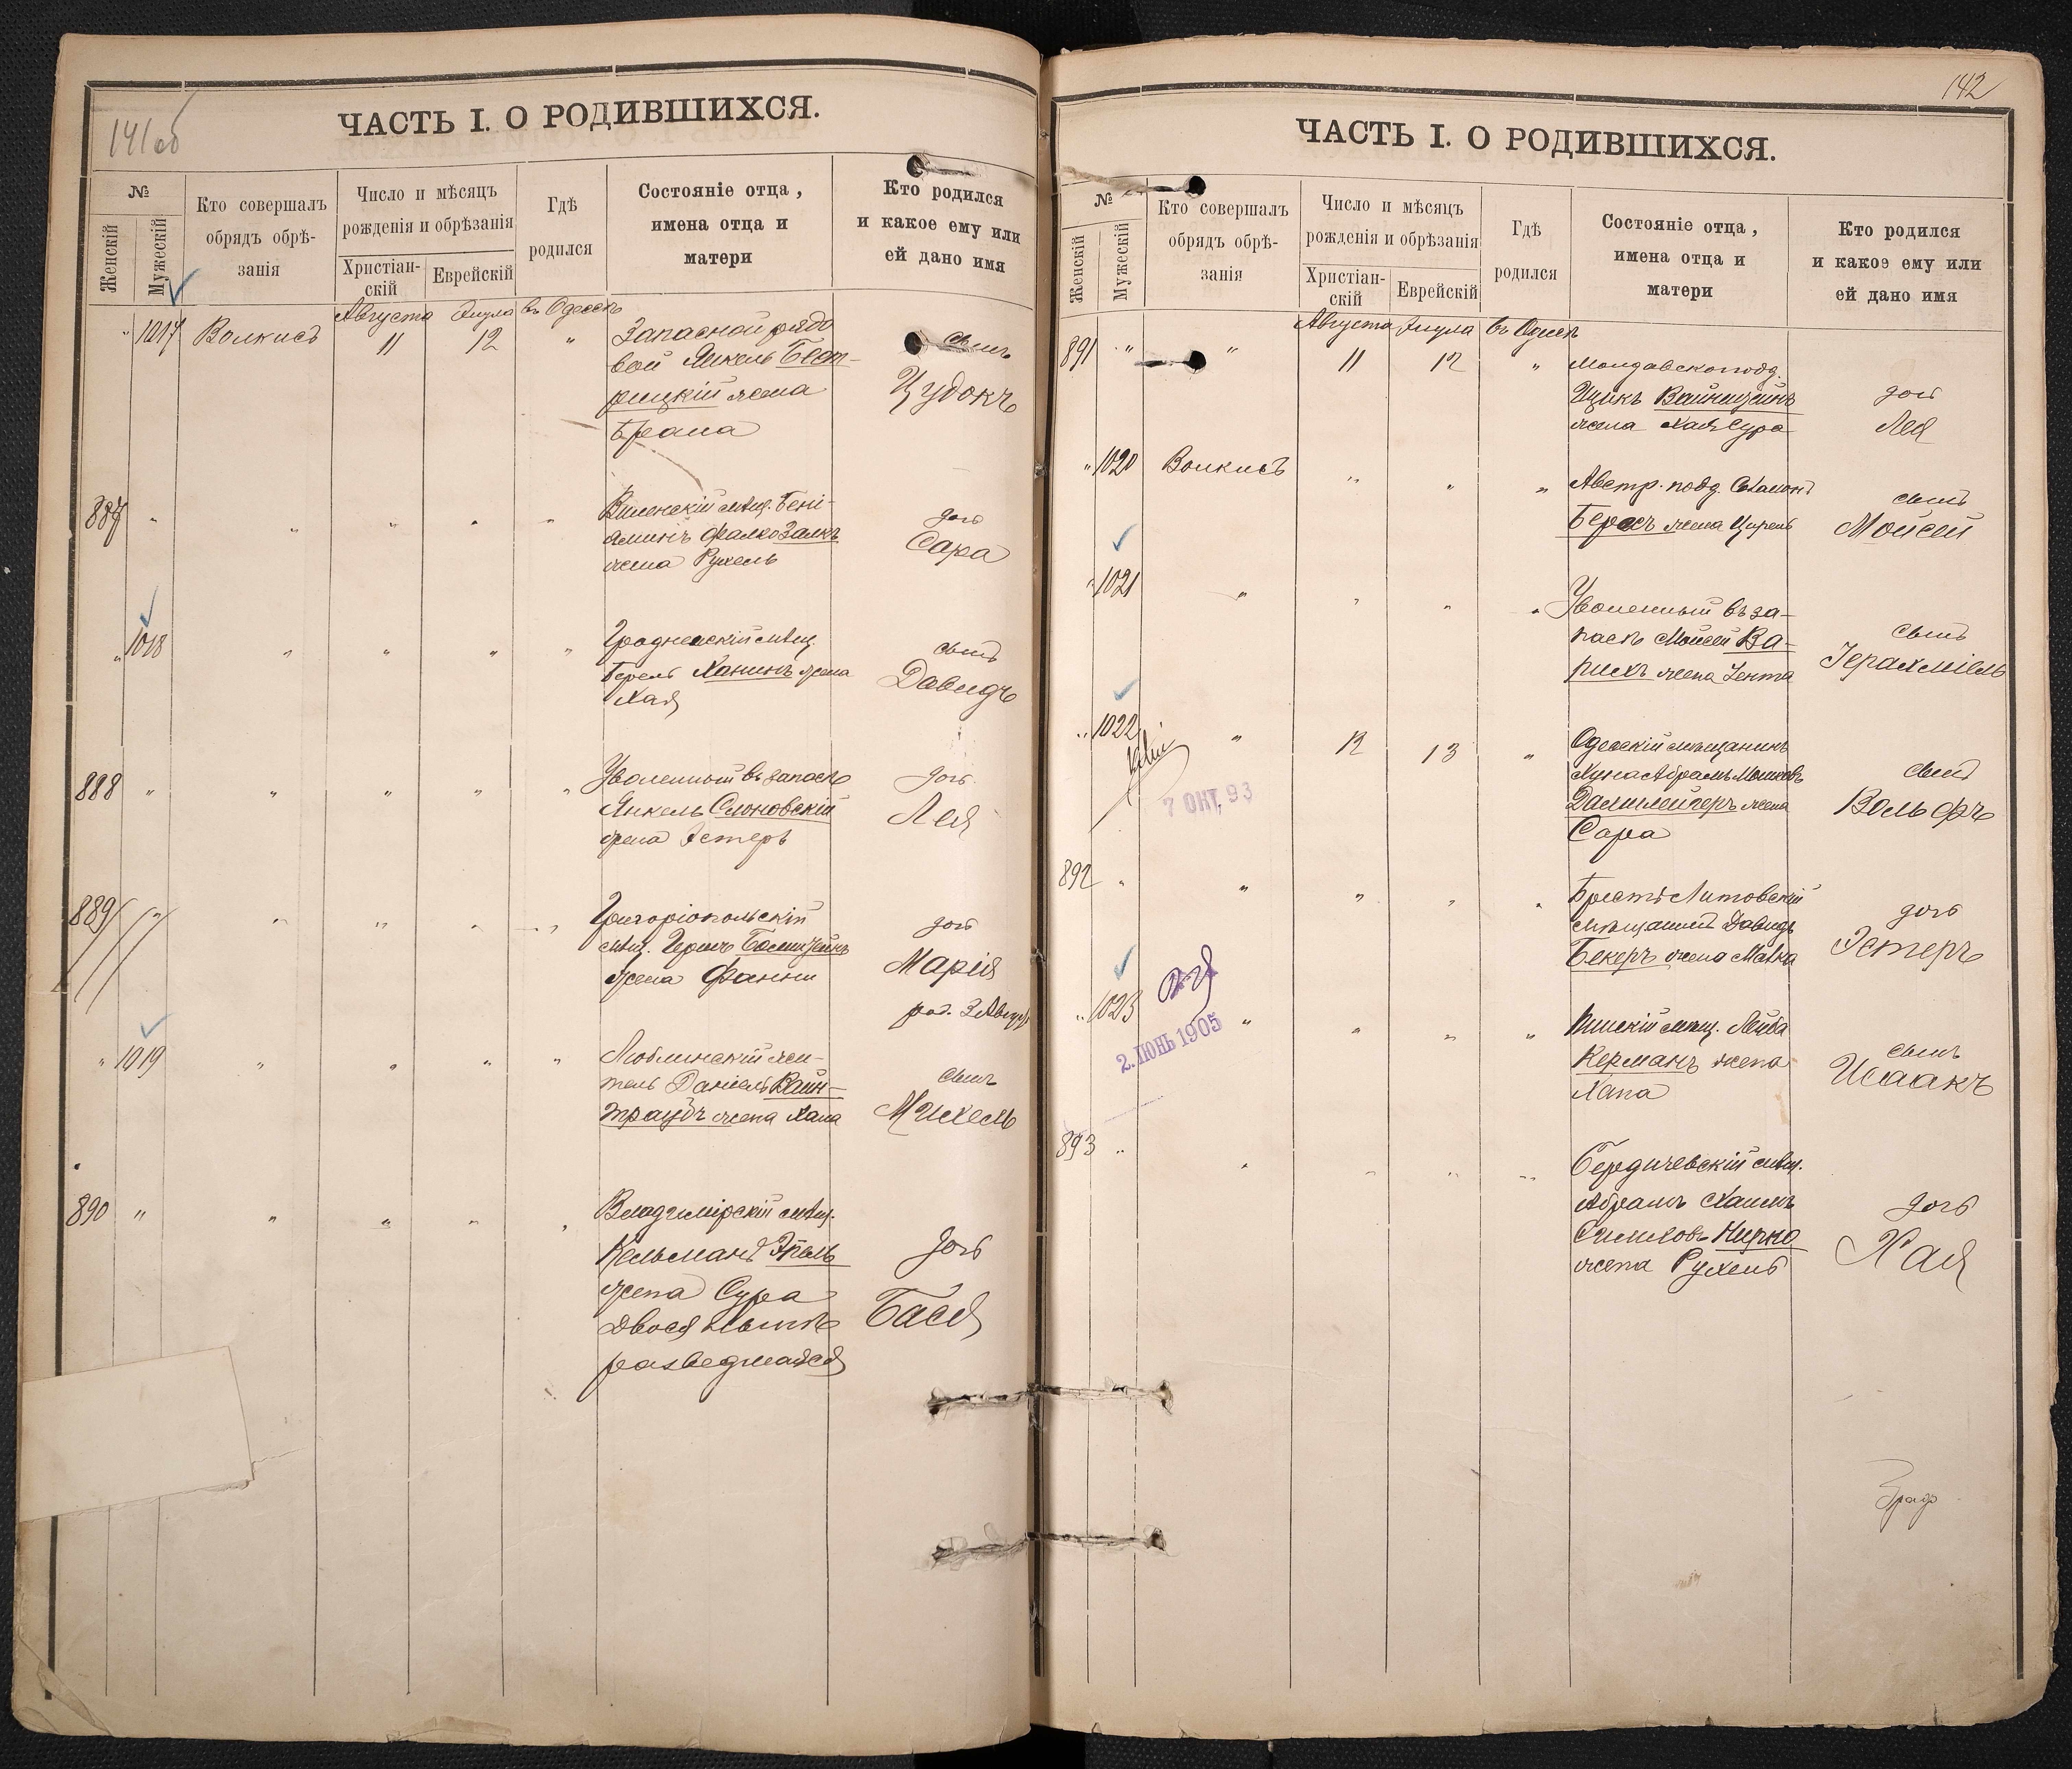 141об
ЧАСТЬ I. О РОДИВШИХСЯ.
№
Женскій
Мужескій
Кто совершалъ
обрядъ обрѣ-
занія
Число и мѣсяцъ
рожденія и обрѣзанія
Христіан-
скій
Еврейскій
Гдѣ
родился
Состояніе отца,
имена отца и
матери
Кто родился
и какое ему или
ей дано имя
Августа Элула въ Одессѣ
" 1017 Волкисъ 11 12 " Запасной рядо
вой Янкель
рицкій жена
сынъ
Цудокъ
887 " " " " " Виленскій мѣщ. Бені-
аминъ Фалко Залкъ
жена Рухель
дочь
Сара
" 1018 " " " " Гродненскій мѣщ.
Берель Ханинъ жена
Хая
сынъ
Давидъ
888 " " " " " Уволенный въ запасъ
Янкель Слоновскій
жена Эстеръ
дочь
Лея
889 " " " " " Григоріопольскій
мѣщ.
жена Фанни
дочь
Марія
род. 3 Августа
" 1019 " " " " Люблинскій жи-
тель Даніель Вайн-
траубъ жена Хана
сынъ
Михель
890 " " " " " Владимірскій мѣщ.
Кельманъ Эпель
жена Сура
Двося нынѣ
разведшаяся
дочь
Бася
142
ЧАСТЬ I. О РОДИВШИХСЯ.
№
Женскій
Мужескій
Кто совершалъ
обрядъ обрѣ-
занія
Число и мѣсяцъ
рожденія и обрѣзанія
Христіан-
скій
Еврейскій
Гдѣ
родился
Состояніе отца,
имена отца и
матери
Кто родился
и какое ему или
ей дано имя
Августа Элула въ Одессѣ
891 " " 11 12 " Молдавскоподд.
Ицикъ Вайнштейнъ
жена Хая Сура
дочь
Лея
" 1020 Волкисъ " " " Австр. подд.
жена Цирель
сынъ
Мойсей
" 1021 " " " " Уволенный въ за-
пасъ Мойсей Ва-
рихъ жена Зента
сынъ
Іерахміель
" 1022 " 12 13 " Одесскій мѣщанинъ
Абрамъ Мошковъ
жена
Сара
сынъ
Вольфъ
7 ОКТ. 93
892 " " " " " Брестъ Литовскій
мѣщанинъ Давидъ
Бекеръ жена Малка
дочь
Эстеръ
" 1023 " " " " Пинскій мѣщ. Лейба
Керманъ жена
Хана
сынъ
Исаакъ
2. ІЮНЬ 1905
893 " " " " " Бердичевскій мѣщ.
Абрамъ Хаимъ
жена Рухель
дочь
Хая